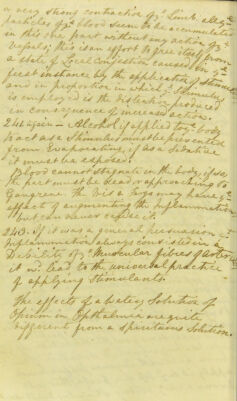 a very strong contraction of ye Limb. all ye
particles of ye blood seem to be accumulated
in this one part without any action of ye
Vessels; this is an effort to free itself from
a state of Local Congestion caused in ye
first instance by the application of stimulus
and in proportion in which ye Stimulus
is employed is the distention produced
in consequence of increased action.
2dly again — Alcohol if applied to ye body
to act as a Stimulus must be prevented
from Evaporation, if as a Sedative
it must be exposed.
Blood cannot stagnate in the body, if so
the part must be dead or approaching to
Gangrene the Vis a tergo may have ye
effect of augmenting the Inflammation
but can never cause it.
2d3. if it was a general persuasion
Inflammation always consisted in a
Debility of ye Muscular fibres of Arteries
it wd. lead to the universal practice
of applying Stimulants.
The effects of a watery Solution of
Opium in Opthalmia are quite
different from a Spirituous Solution.